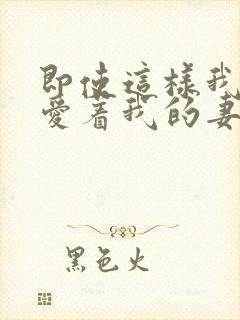 即使這樣我
愛着我的妻
黑色火